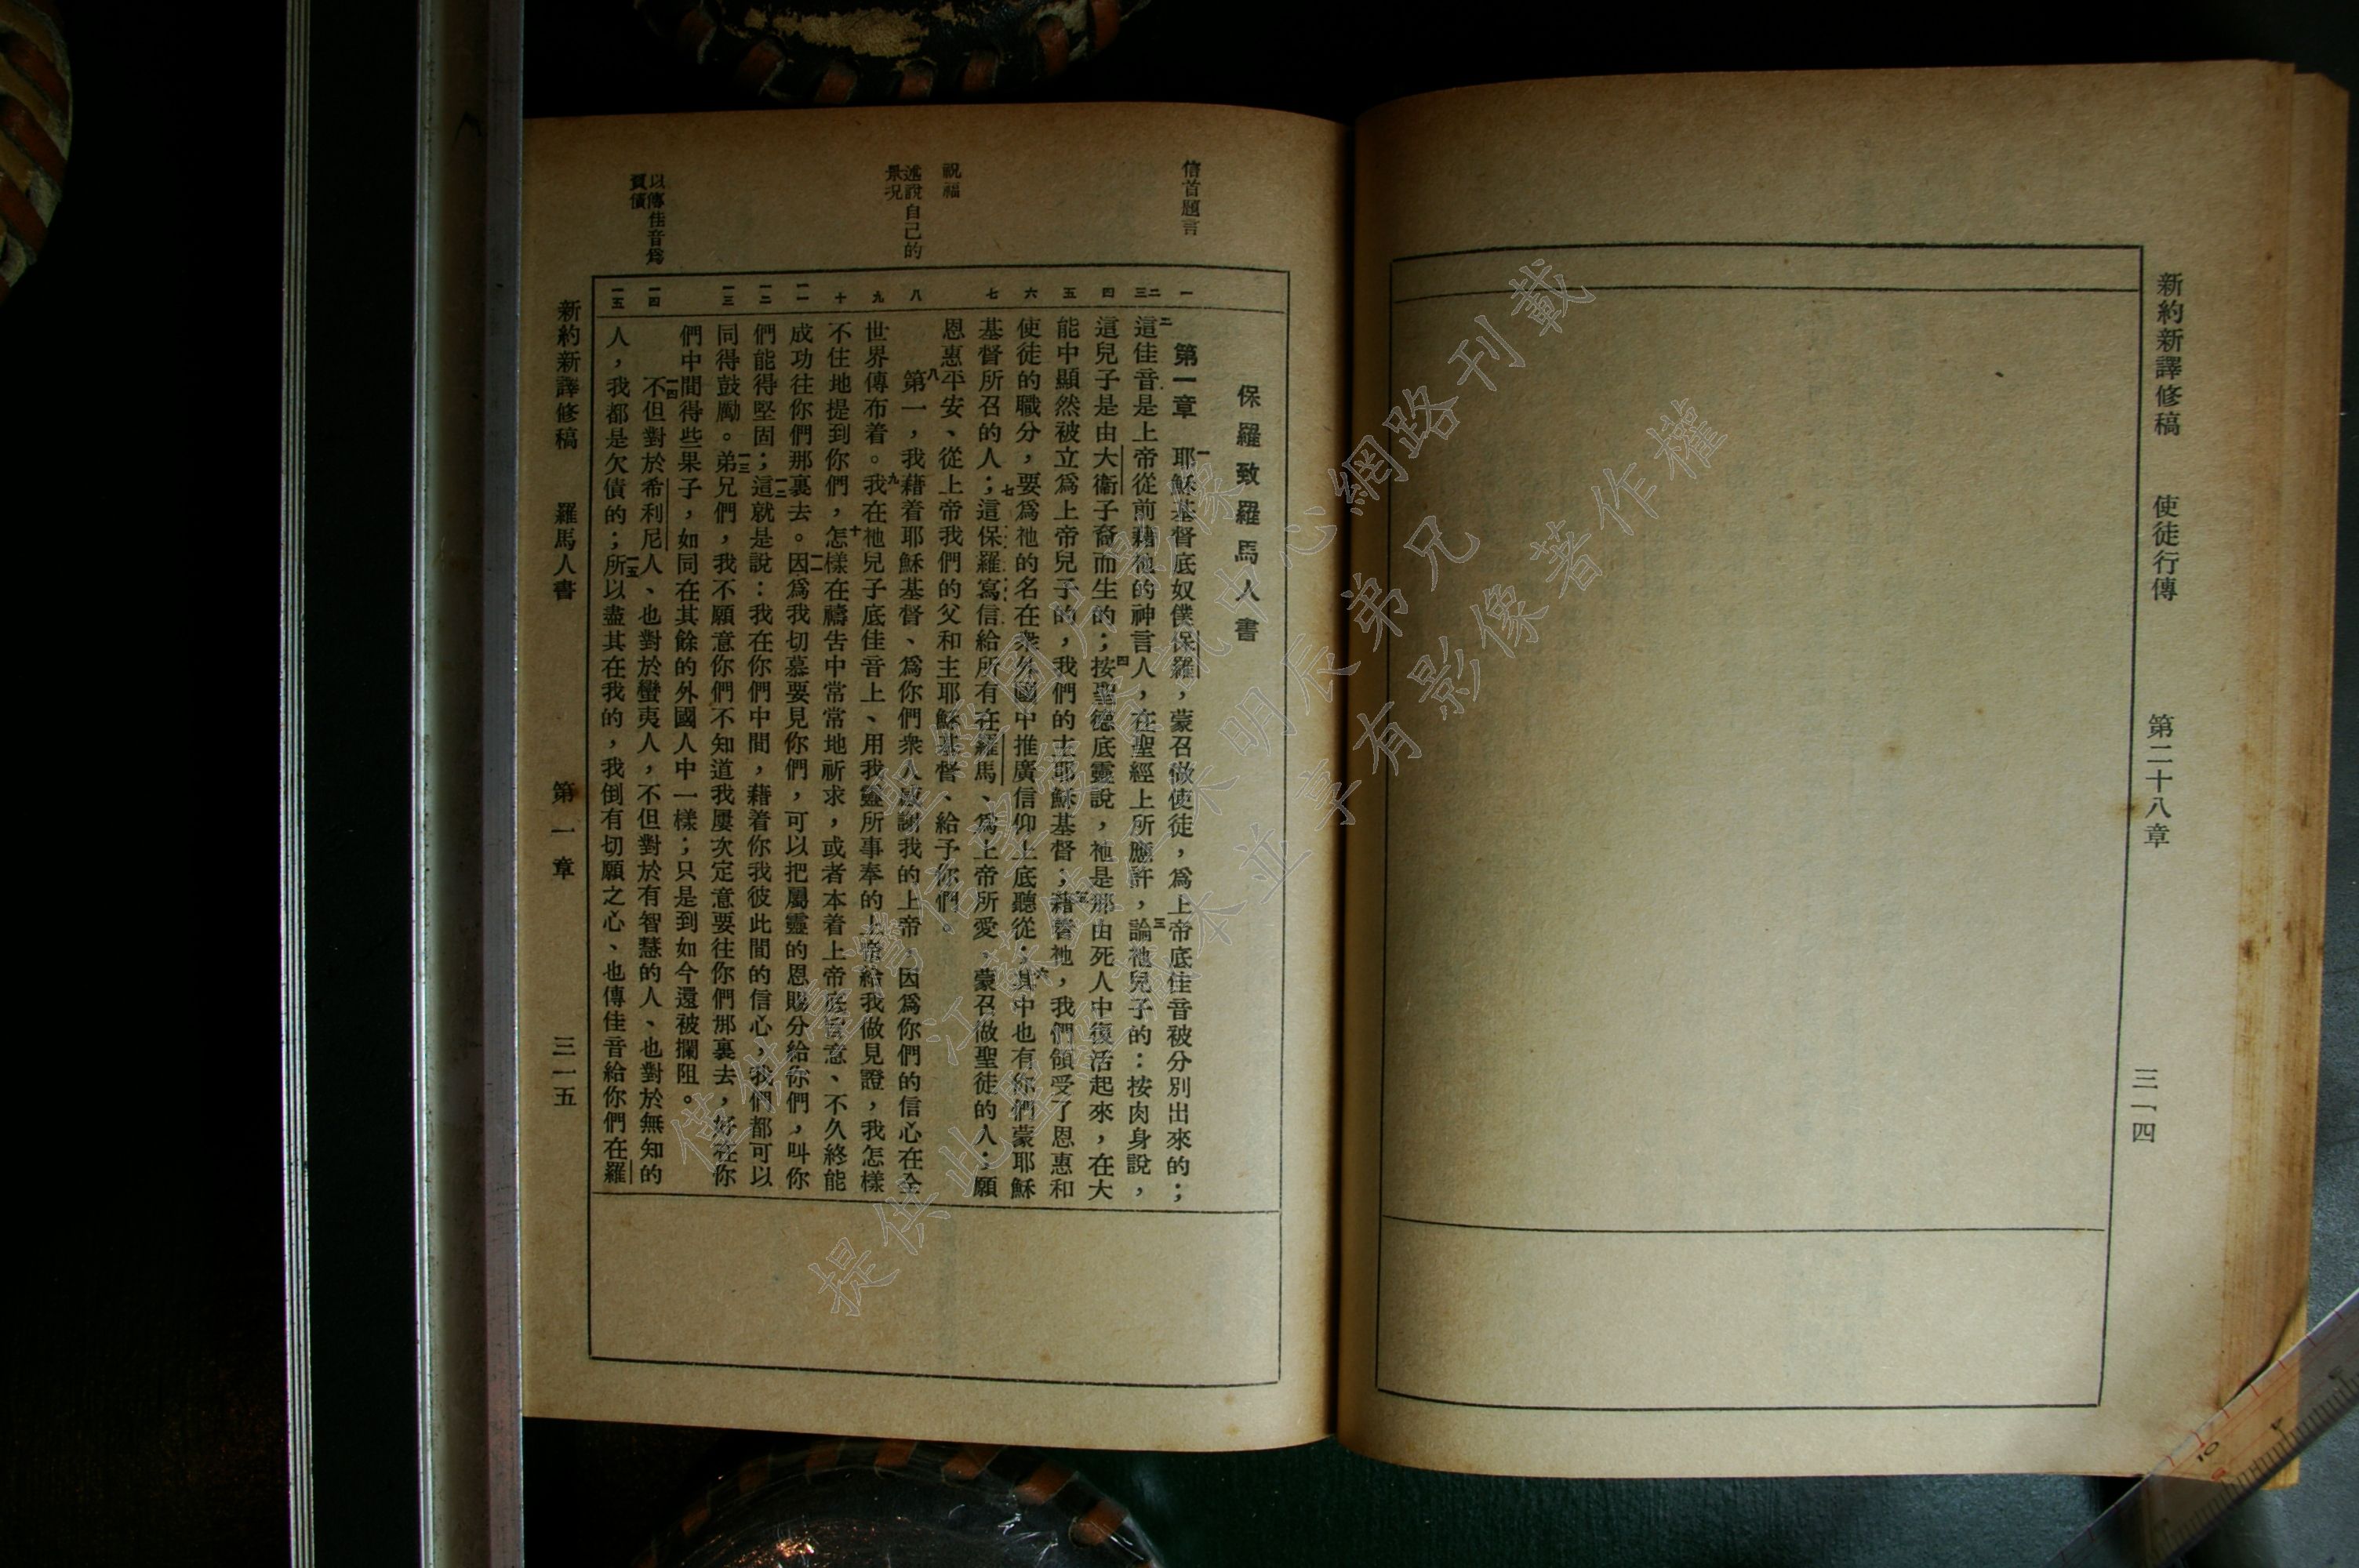 新約新譯修稿　使徒行傳　第二十八章　三一四
信首題言
祝福
述說自己的
景況
以傳佳音爲
賣債
保羅致羅馬人書
一
二
三
四
五
六
七
八
九
十
一一
一二
一三
一四
一五
第一章　一耶穌基督底奴僕保羅，蒙召做使徒，爲上帝底佳音被分別出來的；
二這佳音是上帝從前藉祂的神言人，在聖經上所應許，三論祂兒子的：按肉身說，
這兒子是由大衞子裔而生的；四按聖德底靈說，祂是那由死人中復活起來，在大
能中顯然被立爲上帝兒子的，我們的主耶穌基督；五藉着祂，我們領受了恩惠和
使徒的職分，要爲祂的名在衆外國中推廣信仰上底聽從；六其中也有你們蒙耶穌
基督所召的人；七這保羅寫信給所有在羅馬、爲上帝所愛，蒙召做聖徒的人；願
恩惠平安、從上帝我們的父和主耶穌基督、給予你們。
八第一，我藉着耶穌基督、爲你們衆人感謝我的上帝，因爲你們的信心在全
世界傳布着。九我在祂兒子底佳音上、用我靈所事奉的上帝給我做見證，我怎樣
不住地提到你們，十怎樣在禱告中常常地祈求，或者本着上帝底旨意、不久終能
成功往你們那裏去。一一因爲我切慕要見你們，可以把屬靈的恩賜分給你們，叫你
們能得堅固；一二這就是說：我在你們中間，藉着你我彼此間的信心，我們都可以
同得鼓勵。一三弟兄們，我不願意你們不知道我屢次定意要往你們那裏去，好在你
們中間得些果子，如同在其餘的外國人中一樣；只是到如今還被攔阻。
一四不但對於希利尼人、也對於蠻夷人，不但對於有智慧的人、也對於無知的
人，我都是欠債的；一五所以盡其在我的，我倒有切願之心、也傳佳音給你們在羅
新約新譯修稿　羅馬人書　第一章　三一五
僅供臺灣信望愛資訊中心網路刊載
提供此聖經版本並享有影像著作權
10